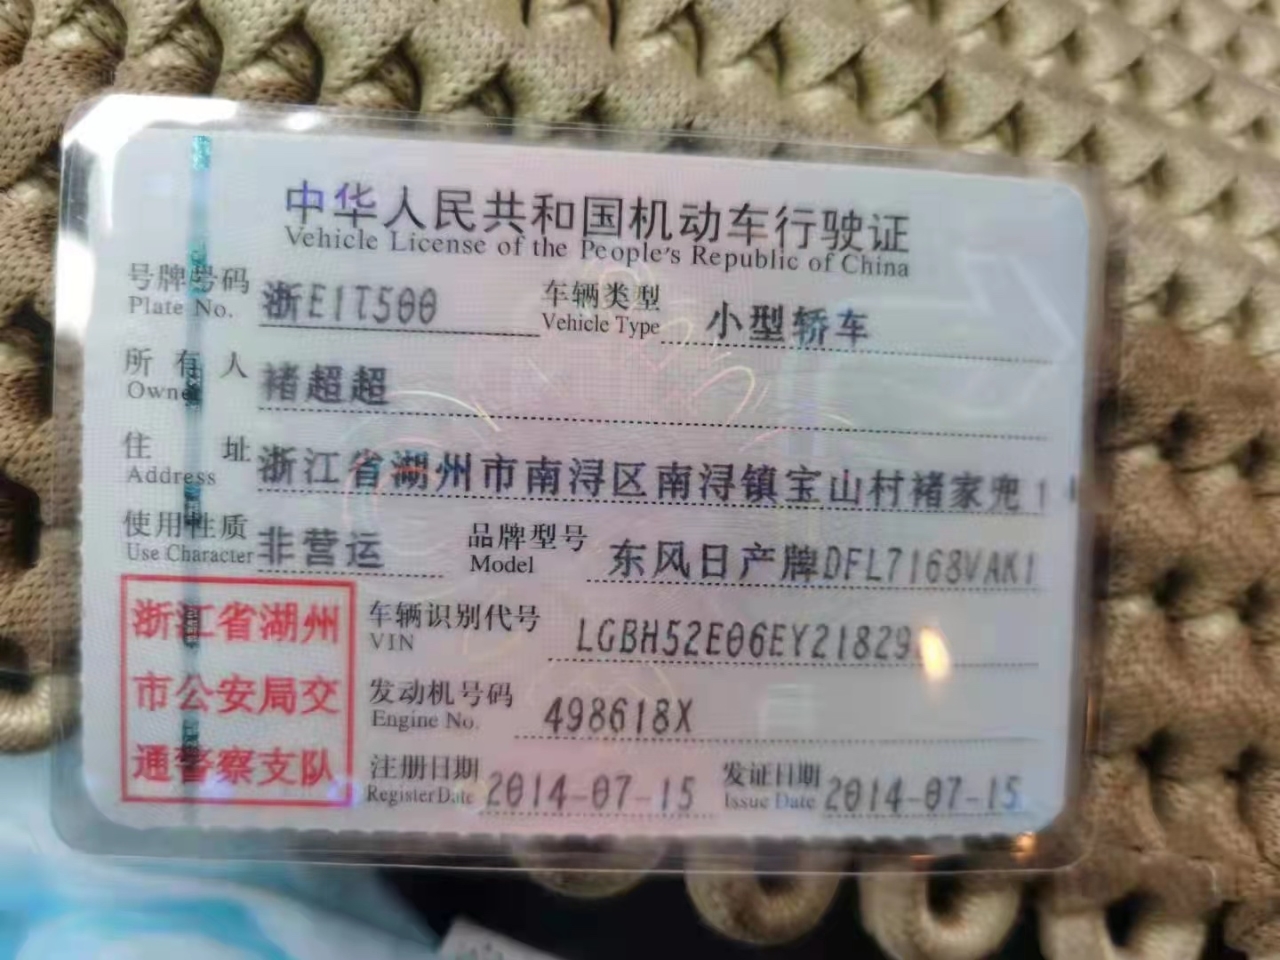 中华人民共和国机动车行驶证
Vehicle License of the People's Republic of China
号牌号码 浙E1T500 车辆类型 小型轿车
Plate No. Vehicle Type
所有人 褚超超
Owner
住址 浙江省湖州市南浔区南浔镇宝山村褚家兜1
Address
使用性质 非营运 品牌型号 东风日产牌DFL7168VAK1
Use Character Model
浙江省湖州
市公安局交
通警察支队
车辆识别代号 LGBH52E06EY21829
VIN
发动机号码 498618X
Engine No.
注册日期 2014-07-15 发证日期 2014-07-15
Register Date Issue Date